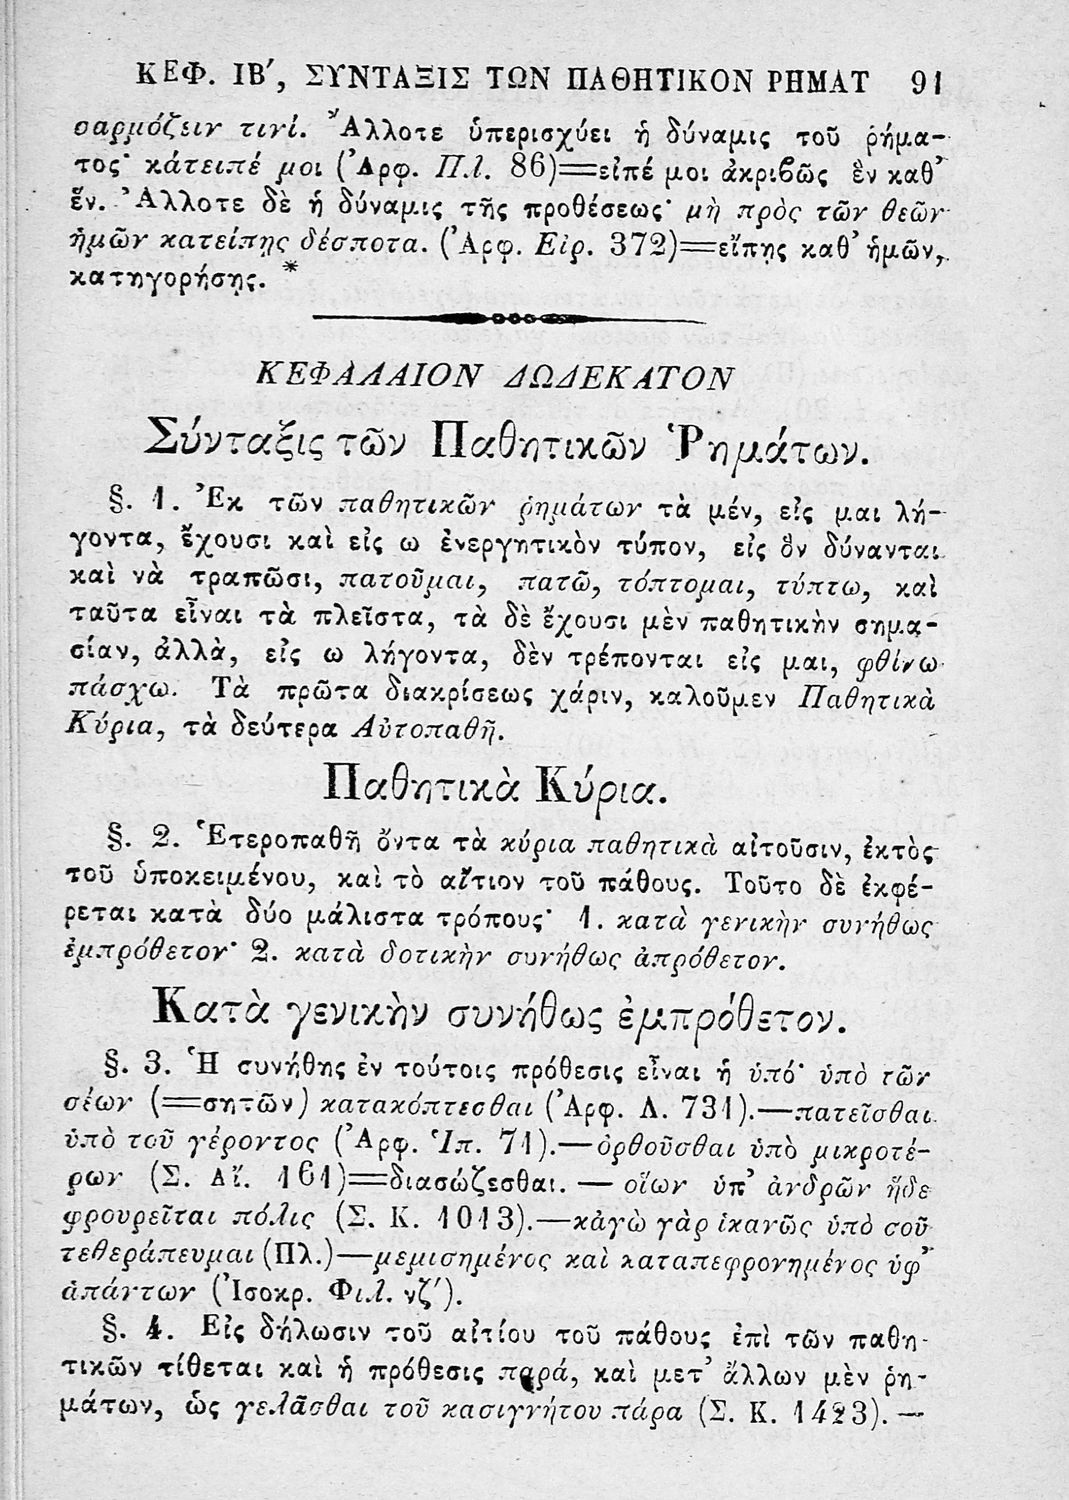 ΚΕΦ. ΙΒ′, ΣΥΝΤΑΞΙΣ ΤΩΝ ΠΑΘΗΤΙΚΟΝ ΡΗΜΑΤ 91
σαρμόζειν τινί. Ἄλλοτε ὑπερισχύει ἡ δύναμις τοῦ ῥήμα-
τος· κάτειπέ μοι (Ἀρφ. Πλ. 86)=εἰπέ μοι ἀκριϐῶς ἓν καθ’
ἕν. Ἄλλοτε δὲ ἡ δύναμις τῆς προθέσεως· μὴ πρὸς τῶν θεῶν
ἡμῶν κατείπῃς δέσποτα. (Ἀρφ. Εἰρ. 372)=εἴπῃς καθ’ ἡμῶν,
κατηγορήσῃς. *
ΚΕΦΑΛΑΙΟΝ ΔΩΔΕΚΑΤΟΝ
Σύνταξις τῶν Παθητικῶν Ῥημάτων.
§. 1. Ἐκ τῶν παθητικῶν ῥημάτων τὰ μέν, εἰς μαι λή-
γοντα, ἔχουσι καὶ εἰς ω ἐνεργητικὸν τύπον, εἰς ὃν δύνανται
καὶ νὰ τραπῶσι, πατοῦμαι, πατῶ, τόπτομαι, τύπτω, καὶ
ταῦτα εἶναι τὰ πλεῖστα, τὰ δὲ ἔχουσι μὲν παθητικὴν σημα-
σίαν, ἀλλὰ, εἰς ω λήγοντα, δὲν τρέπονται εἰς μαι, φθίνω
πάσχω. Τὰ πρῶτα διακρίσεως χάριν, καλοῦμεν Παθητικὰ
Κύρια, τὰ δεύτερα Αὐτοπαθῆ.
Παθητικὰ Κύρια.
§. 2. Ἑτεροπαθῆ ὄντα τὰ κύρια παθητικὰ αἰτοῦσιν, ἐκτὸς
τοῦ ὑποκειμένου, καὶ τὸ αἴτιον τοῦ πάθους. Τοῦτο δὲ ἐκφέ-
ρεται κατὰ δύο μάλιστα τρόπους· 1. κατὰ γενικὴν συνήθως
ἐμπρόθετον· 2. κατὰ δοτικὴν συνήθως ἀπρόθετον.
Κατὰ γενικὴν συνήθως ἐμπρόθετον.
§. 3. Ἡ συνήθης ἐν τούτοις πρόθεσις εἶναι ἡ ὑπό· ὑπὸ τῶν
σέων (=σητῶν) κατακόπτεσθαι (Ἀρφ. Λ. 731).—πατεῖσθαι
ὑπὸ τοῦ γέροντος (Ἀρφ. Ἱπ. 71).—ὀρθοῦσθαι ὑπὸ μικροτέ-
ρων (Σ. Αἴ. 161)=διασώζεσθαι. — οἵων ὑπ’ ἀνδρῶν ἥδε
φρουρεῖται πόλις (Σ. Κ. 1013).—κἀγὼ γὰρ ἱκανῶς ὑπὸ σοῦ
τεθεράπευμαι (Πλ.)—μεμισημένος καὶ καταπεφρονημένος ὑφ’
ἁπάντων (Ἰσοκρ. Φιλ. νζ′).
§. 4. Εἰς δήλωσιν τοῦ αἰτίου τοῦ πάθους ἐπὶ τῶν παθη-
τικῶν τίθεται καὶ ἡ πρόθεσις παρά, καὶ μετ’ ἄλλων μὲν ῥη-
μάτων, ὡς γελᾶσθαι τοῦ κασιγνήτου πάρα (Σ. Κ. 1423). —